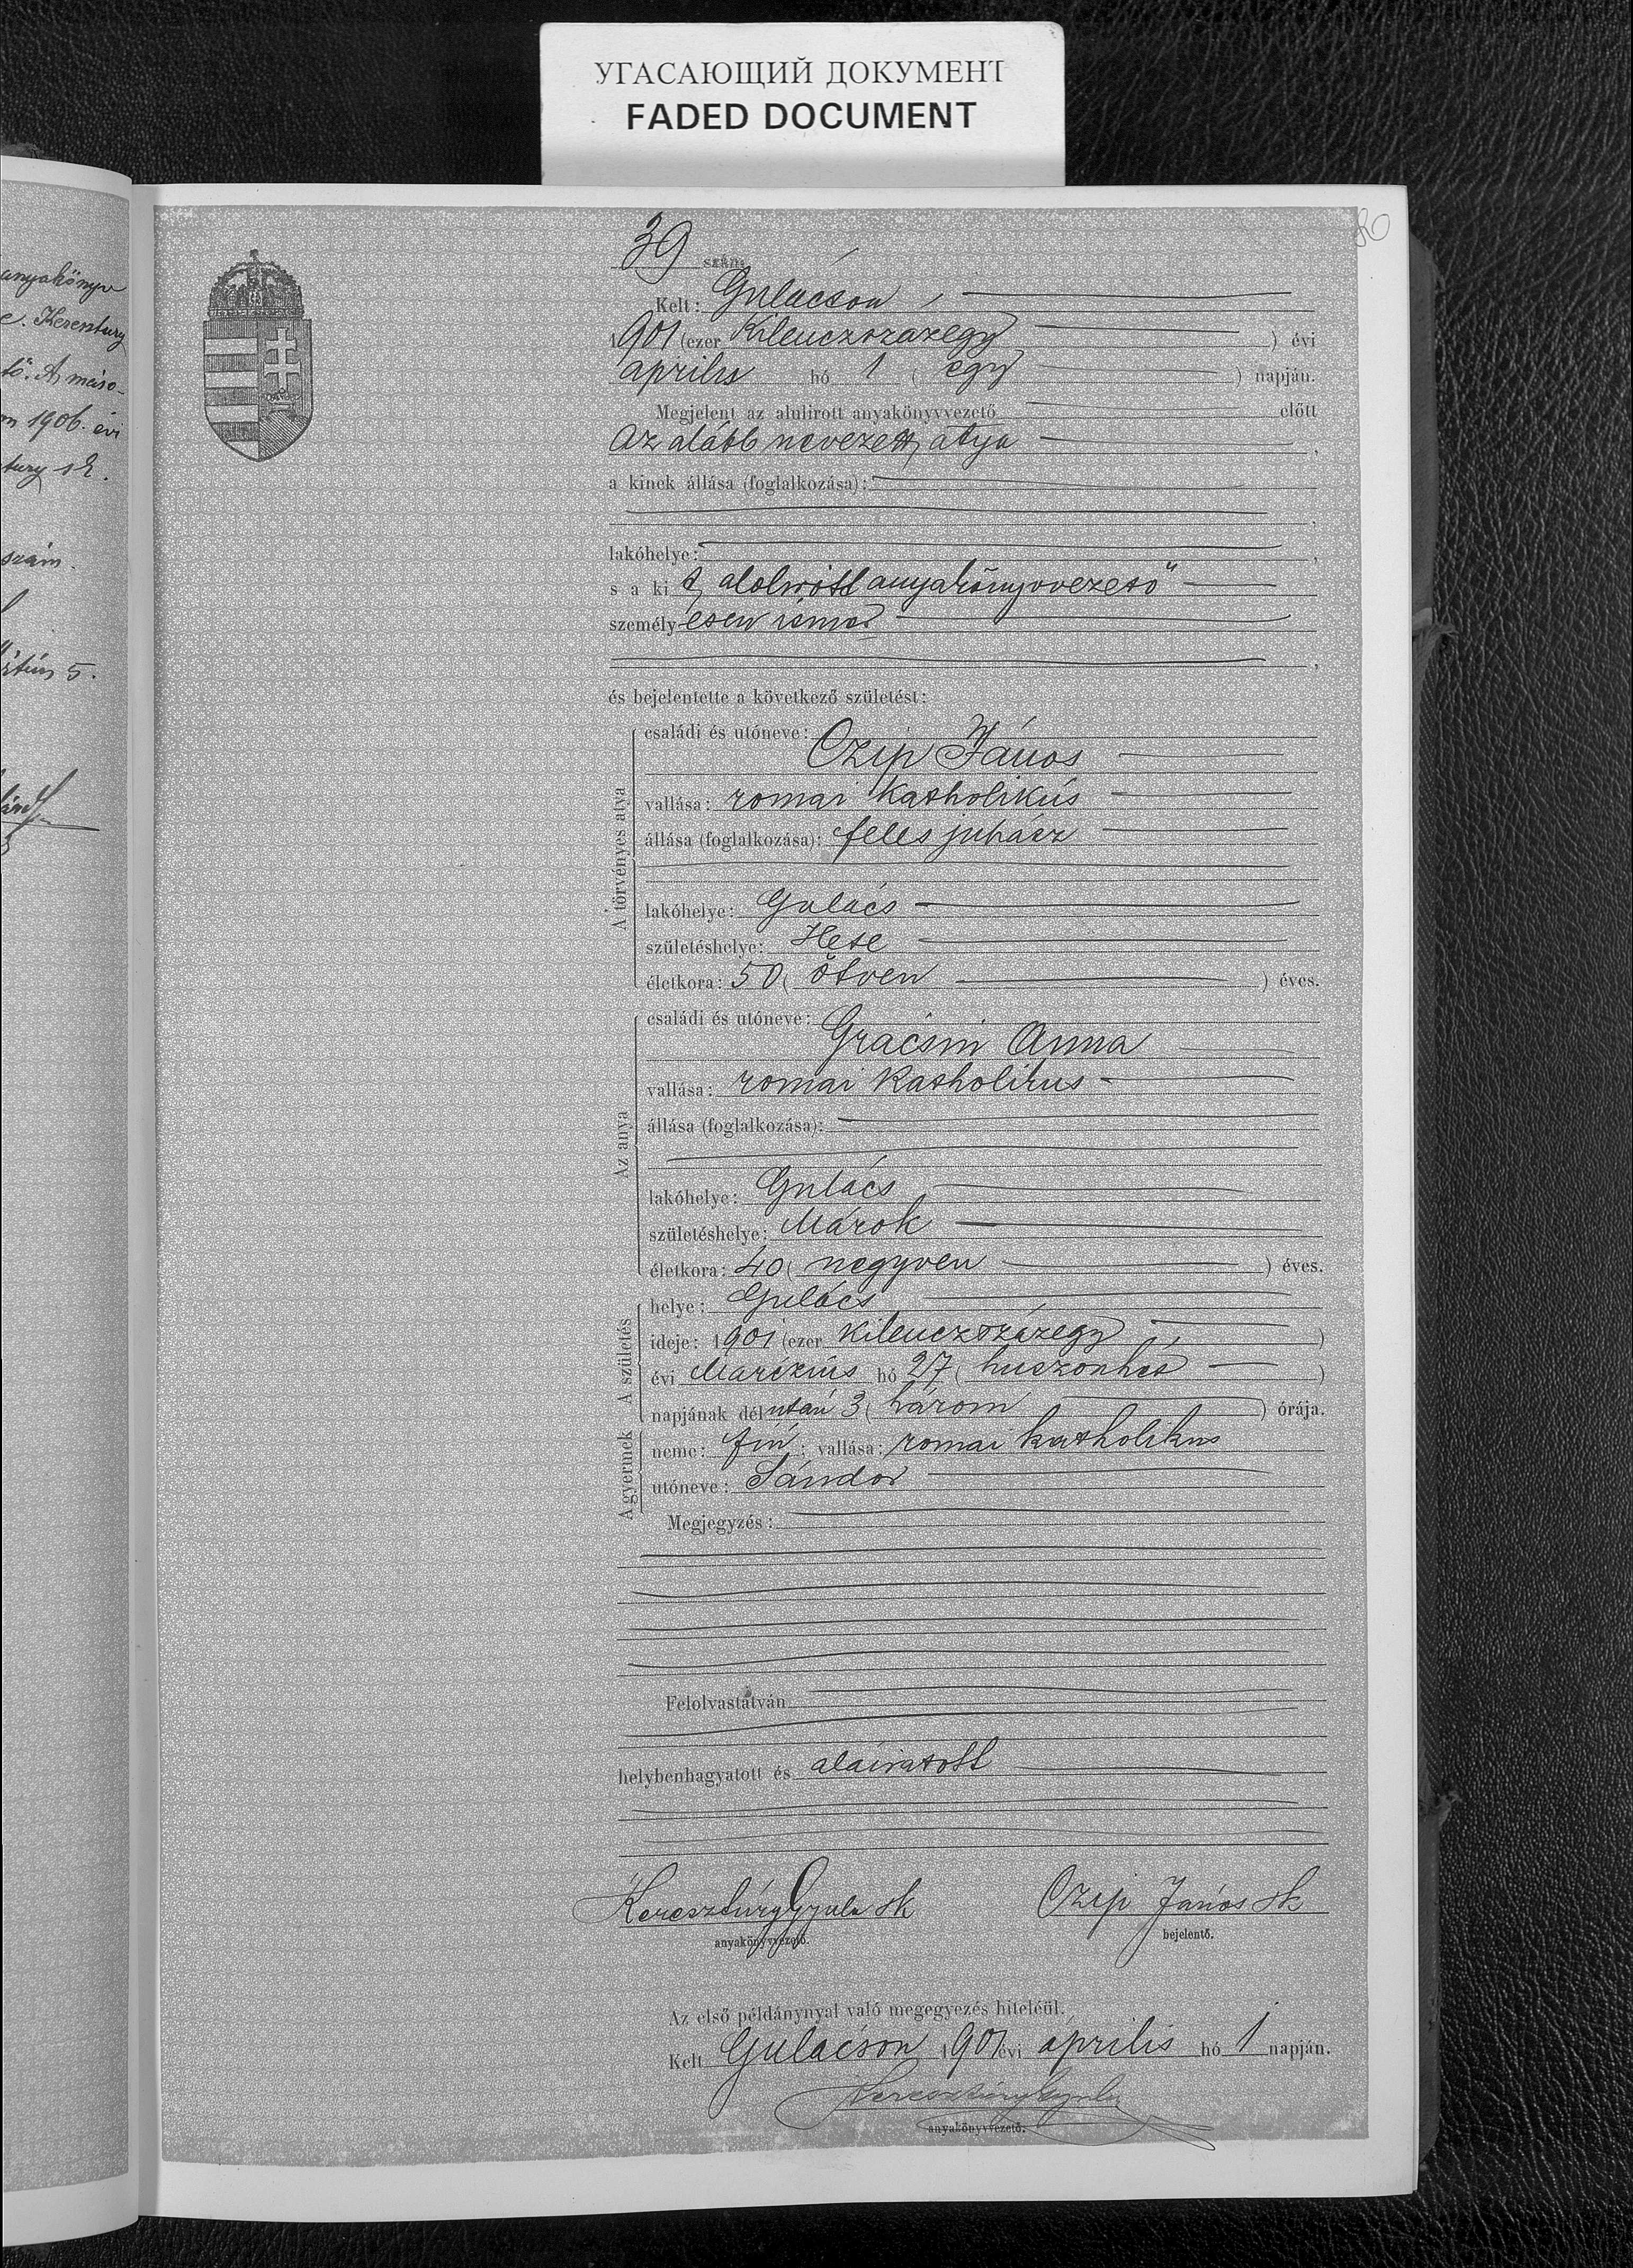 УГАСАЮЩИЙ ДОКУМЕНТ
FADED DOCUMENT
80
anyakönyv
Keresztury
A máso-
1906. évi
tury sk.
szám.
5.
39 szám.
Kelt: Gulácson,
1901 (ezer Kilenczszázegy) évi
április hó 1 (egy) napján.
Megjelent az alulirott anyakönyvvezető előtt
Az alább nevezett atya,
a kinek állása (foglalkozása):
lakóhelye:
s a ki az alolirott anyakönyvvezető
személyesen ismer
és bejelentette a következő születést:
A törvényes atya
családi és utóneve:
Czip János
vallása: romai Katholikús
állása (foglalkozása): feles juhász
lakóhelye: Gulács
születéshelye: Hete
életkora: 50 (ötven) éves.
Az anya
családi és utóneve:
Gracsni Anna
vallása: romai Katholikus
állása (foglalkozása):
lakóhelye: Gulács
születéshelye: Márok
életkora: 40 (negyven) éves.
A születés
helye: Gulács
ideje: 1901 (ezer kilenczszázegy)
évi Marczius hó 27 (huszonhet)
napjának délután 3 (három) órája.
A gyermek
neme: fiú; vallása: romai katholikus
utóneve: Sándor
Megjegyzés:
Felolvastatván
helybenhagyatott és aláiratott
Keresztúry Gyula sk
anyakönyvvezető.
Czip János sk
bejelentő.
Az első példánynyal való megegyezés hiteléül.
Kelt Gulácson 1901 évi április hó 1 napján.
Keresztúry Gyula
anyakönyvvezető.